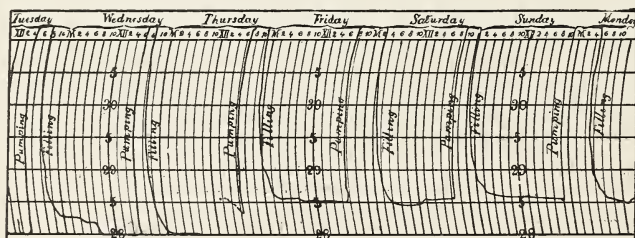 Tuesday Wednesday Thursday Friday Saturday Sunday Monday
XII 2 4 6 8 10 M 2 4 6 8 10 XII 2 4 6 8 10 M 2 4 6 8 10 XII 2 4 6 8 10 M 2 4 6 8 10 XII 2 4 6 8 10 M 2 4 6 8 10 XII 2 4 6 8 10 M 2 4 6 8 10 XII 2 4 6 8 10 M 2 4 6 8 10
5 5 5
30 30 30
Pumping Filling Pumping Filling Pumping Filling Pumping Filling Pumping Filling Pumping Filling
5 5 5
20 20 20
5 5 5
20 20 20